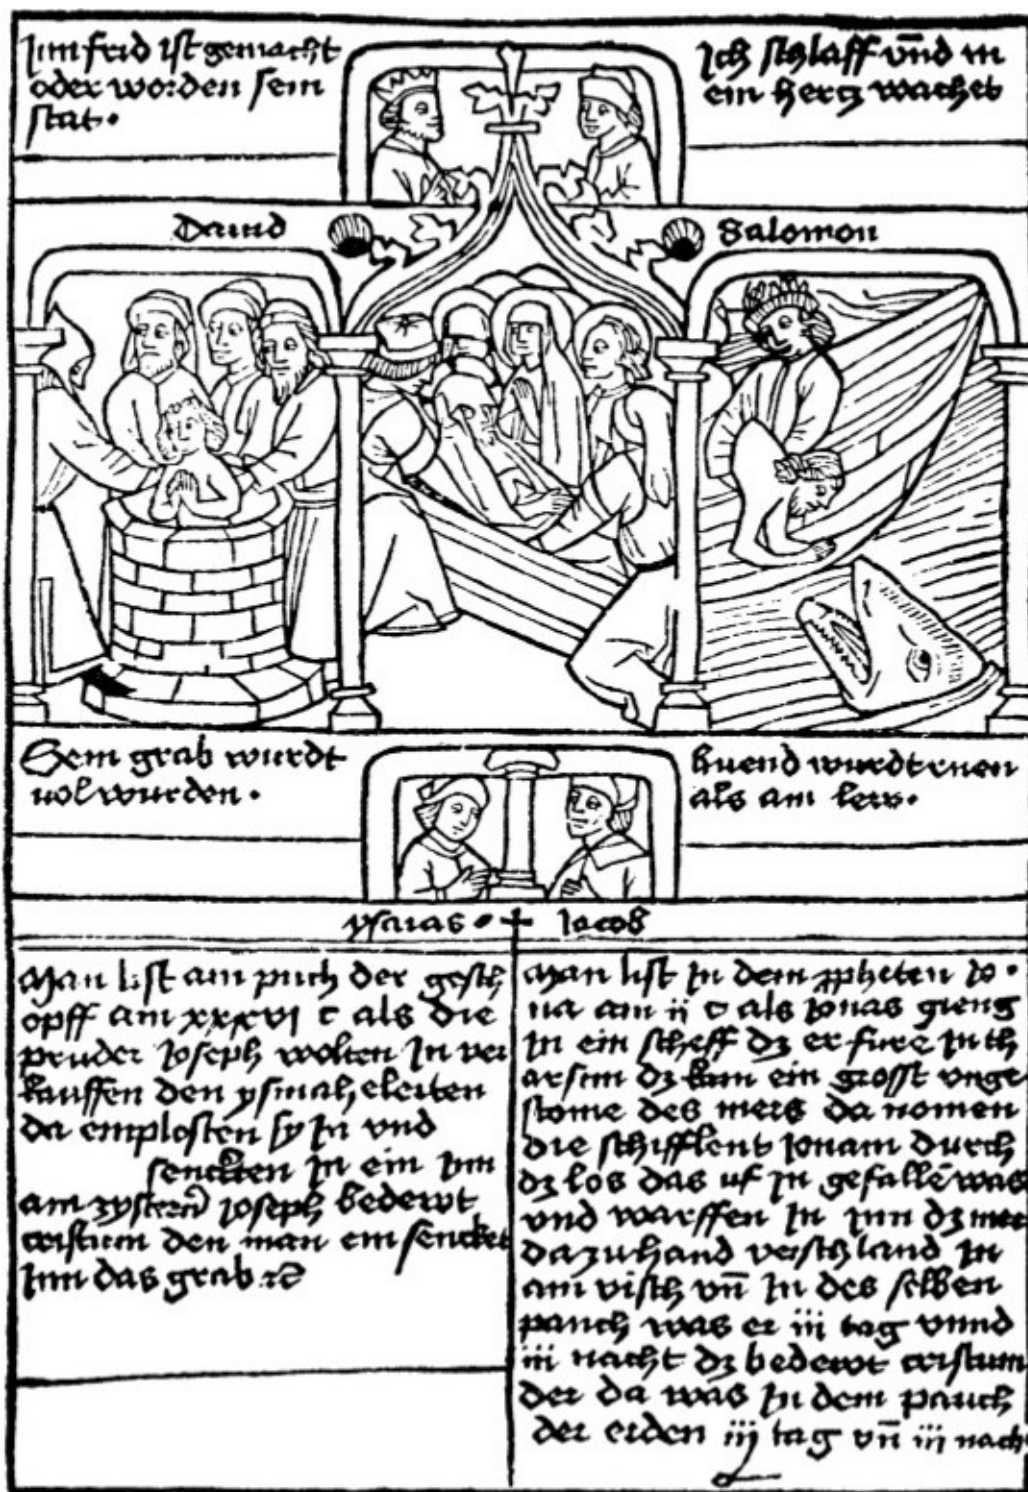 Im frid ist gemacht
oder worden sein
stat.
Ich schlaff vnnd m
ein hercz wachet
Dauid
Salomon
Sein grab wurdt
vol wurden.
huend wurdt ruen
als am lew.
ysaias. + Jacob
Man list am puch der gesch
opff am xxxvi c als die
pruder Joseph wolten In ver
kauffen den ysmaheleiten
da emplosten sy In vnd
senckten In ein Inn
am zystern Joseph bedewt
cristum den man ein sencket
Inn das grab ꝛc
Man list In dem ꝓpheten Jo.
na am ii c als Jonas gieng
In ein scheff dz er fure In th
arsim dz kam ein grosst vnge
stome des mers da nomen
die schifflent Jonam durch
dz los das uf In gefallē was
vnd warffen In Inn dz mer
da zuhand verschland In
am visch vn̄ In des selben
pauch was er iii tag vnnd
iii nacht dz bedewt cristum
der da was In dem pauch
der erden iij tag vn̄ iii nach